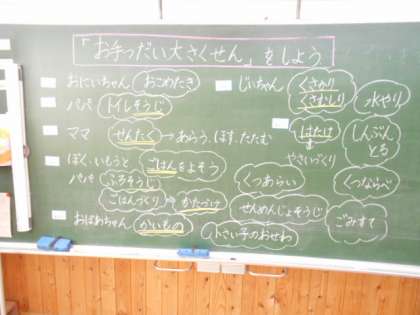 「お手つだい大さくせん」をしよう
おにいちゃん おこめたき
パパ トイレそうじ
ママ せんたく→あらう、ほす、たたむ
ぼく、いもうと ごはんをよそう
パパ ふろそうじ
ごはんづくり かたづけ
おばあちゃん かいもの
小さい子のおせわ
じいちゃん くさかり
くさむしり
水やり
はたけ
やさいづくり
しんぶん
とる
くつあらい
くつならべ
せんめんじょそうじ
ごみすて